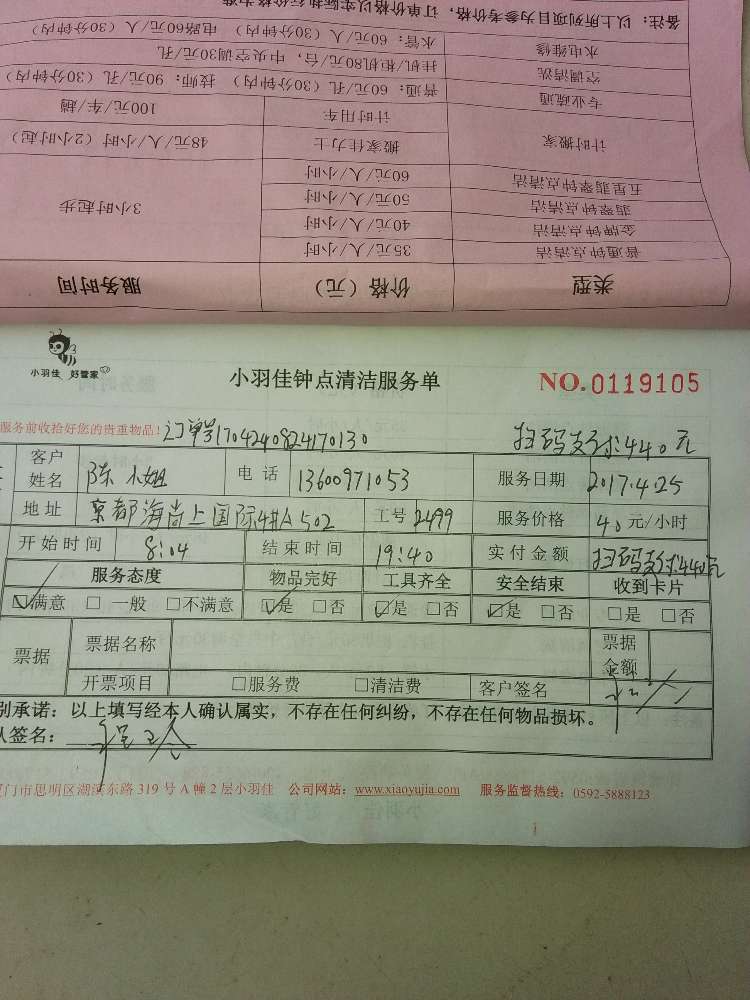 备注：以上所列项目为参考价格，订单价格以实际执行价格为准
水电维修 水管：60元/人（30分钟内） 电路60元（30分钟内）
空调清洗 挂机/柜机80元/台，中央空调30元/孔
专业疏通 普通：60元/孔（30分钟内） 技师：90元/孔（30分钟内）
计时搬家 计时用车 100元/车/趟
搬家佳力士 48元/人/小时（2小时起）
五星翡翠钟点清洁 60元/人/小时
翡翠钟点清洁 50元/人/小时 3小时起步
金牌钟点清洁 40元/人/小时
普通钟点清洁 35元/人/小时
类型 价格（元） 服务时间
小羽佳 好管家
小羽佳钟点清洁服务单 NO.0119105
服务前收拾好您的贵重物品! 订单号170424082417０130 扫码支付:440元
客户姓名 陈小姐 电话 13600971053 服务日期 2017.4.25
地址 京都海尚上国际4#A502 工号 2499 服务价格 40元/小时
开始时间 8:04 结束时间 19:40 实付金额 扫码支付:440元
服务态度 物品完好 工具齐全 安全结束 收到卡片
☑满意 □一般 □不满意 ☑是 □否 ☑是 □否 ☑是 □否 □是 □否
票据 票据名称 票据金额
开票项目 □服务费 □清洁费 客户签名
别承诺：以上填写经本人确认属实，不存在任何纠纷，不存在任何物品损坏。
人签名：
厦门市思明区湖滨东路319号A幢2层小羽佳 公司网站：www.xiaoyujia.com 服务监督热线：0592-5888123